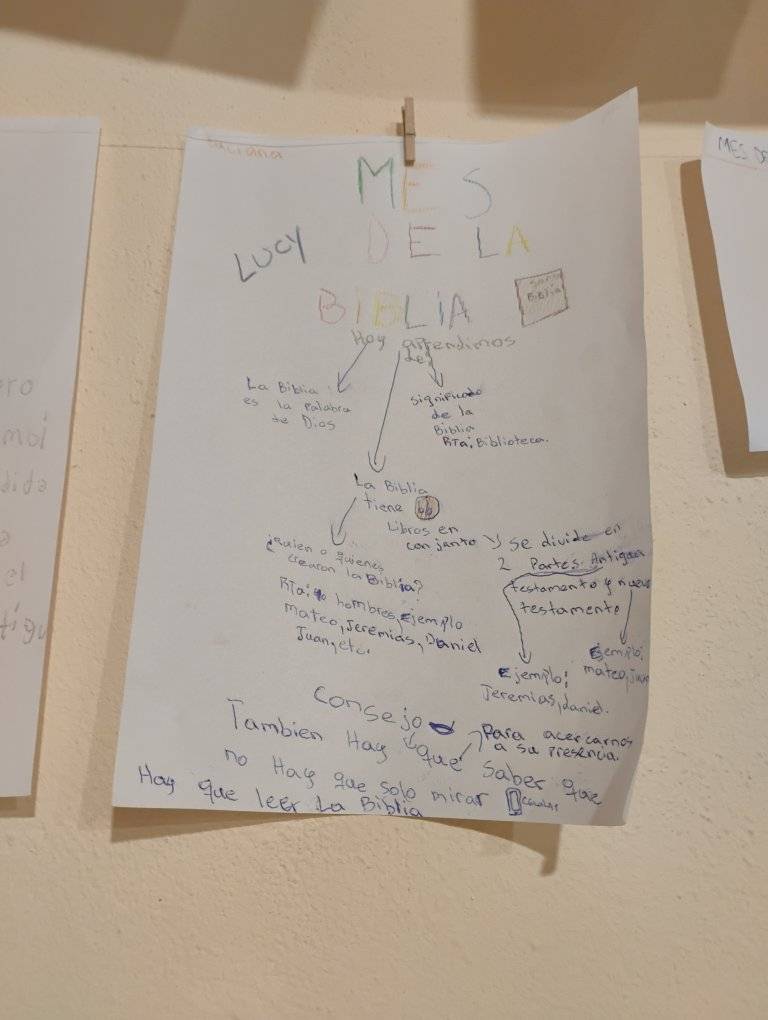 Luciana
MES
DE LA
LUCY
BIBLIA
Santa
Biblia
Hoy aprendimos
de:
La Biblia
es la Palabra
de Dios
significado
de la
Biblia
RTa: Biblioteca.
La Biblia
tiene 66
Libros en
conjunto y se divide en
2 Partes: Antiguo
testamento y nuevo
testamento
¿Quien o quienes
crearon la Biblia?
RTa: hombres, Ejemplo
mateo, Jeremias, Daniel
Juan, etc.
Ejemplo:
Jeremias, daniel.
Ejemplo:
mateo, Juan
Consejo
Tambien Hay que saber que
Para acercarnos
a su presencia.
no Hay que solo mirar celular
Hay que leer La Biblia
MES DE